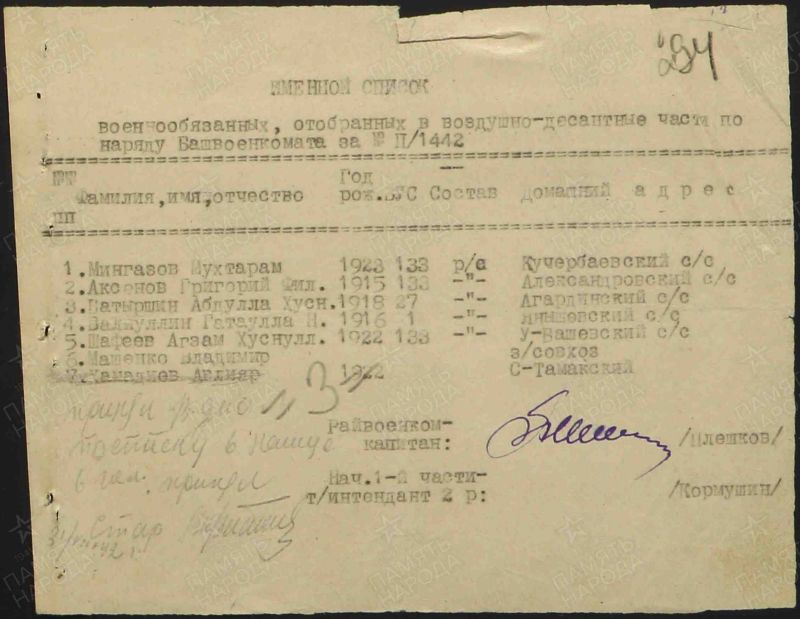 294
ИМЕННОЙ СПИСОК
военнообязанных, отобранных в воздушно-десантные части по
наряду Башвоенкомата за № П/1442
№№ Фамилия,имя,отчество Год рож. ВУС Состав Домашний адрес
пп
1.Мингазов Мухтарам 1923 133 р/с Кучербаевский с/с
2.Аксенов Григорий Фил. 1915 133 -"- Александровский с/с
3.Батыршин Абдулла Хусн. 1918 27 -"- Агардинский с/с
4.Валиуллин Гатаулла Н. 1916 1 -"- Янышевский с/с
5.Шафеев Агзам Хуснулл. 1922 133 -"- У-Башевский с/с
6.Машенко Владимир з/совхоз
7.Хамадиев 1922 С-Тамакский
3
Райвоенком-
капитан: /Плешков/
Нач.1-й части-
т/интендант 2 р: /Кормушин/
ПАМЯТЬ НАРОДА